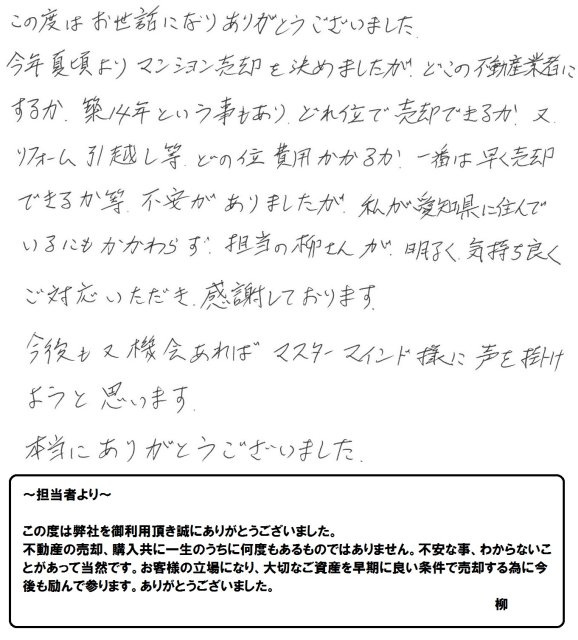 この度はお世話になりありがとうございました.
今年夏頃よりマンション売却を決めましたが、どこの不動産業者に
するか、築14年という事もあり、どれ位で売却できるか、又
リフォーム引越し等、どの位費用かかるか、一番は早く売却
できるか等、不安がありましたが、私が愛知県に住んで
いるにもかかわらず、担当の柳さんが、明るく、気持ち良く
ご対応いただき、感謝しております.
今後も又機会あればマスターマインド様に声を掛け
ようと思います.
本当にありがとうございました.
～担当者より～
この度は弊社を御利用頂き誠にありがとうございました。
不動産の売却、購入共に一生のうちに何度もあるものではありません。不安な事、わからないこ
とがあって当然です。お客様の立場になり、大切なご資産を早期に良い条件で売却する為に今
後も励んで参ります。ありがとうございました。
柳